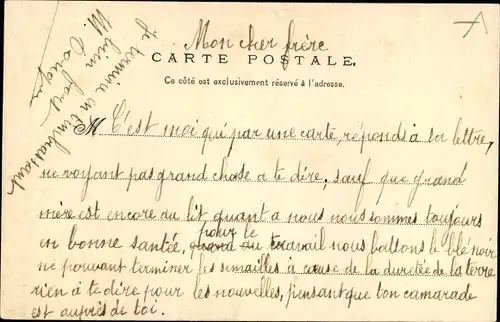 Mon cher frère
CARTE POSTALE.
Ce côté est exclusivement réservé à l'adresse.
M C'est moi qui par une carte, réponds à ta lettre,
ne voyant pas grand chose a te dire, sauf que grand
mère est encore au lit quant a nous nous sommes toujours
en bonne santée, pour le travail nous battons le blé noir
ne pouvant terminer les semailles à cause de la duretée de la terre
rien à te dire pour les nouvelles, pensant que ton camarade
est auprès de toi.
Je termine en t'embrassant
bien fort